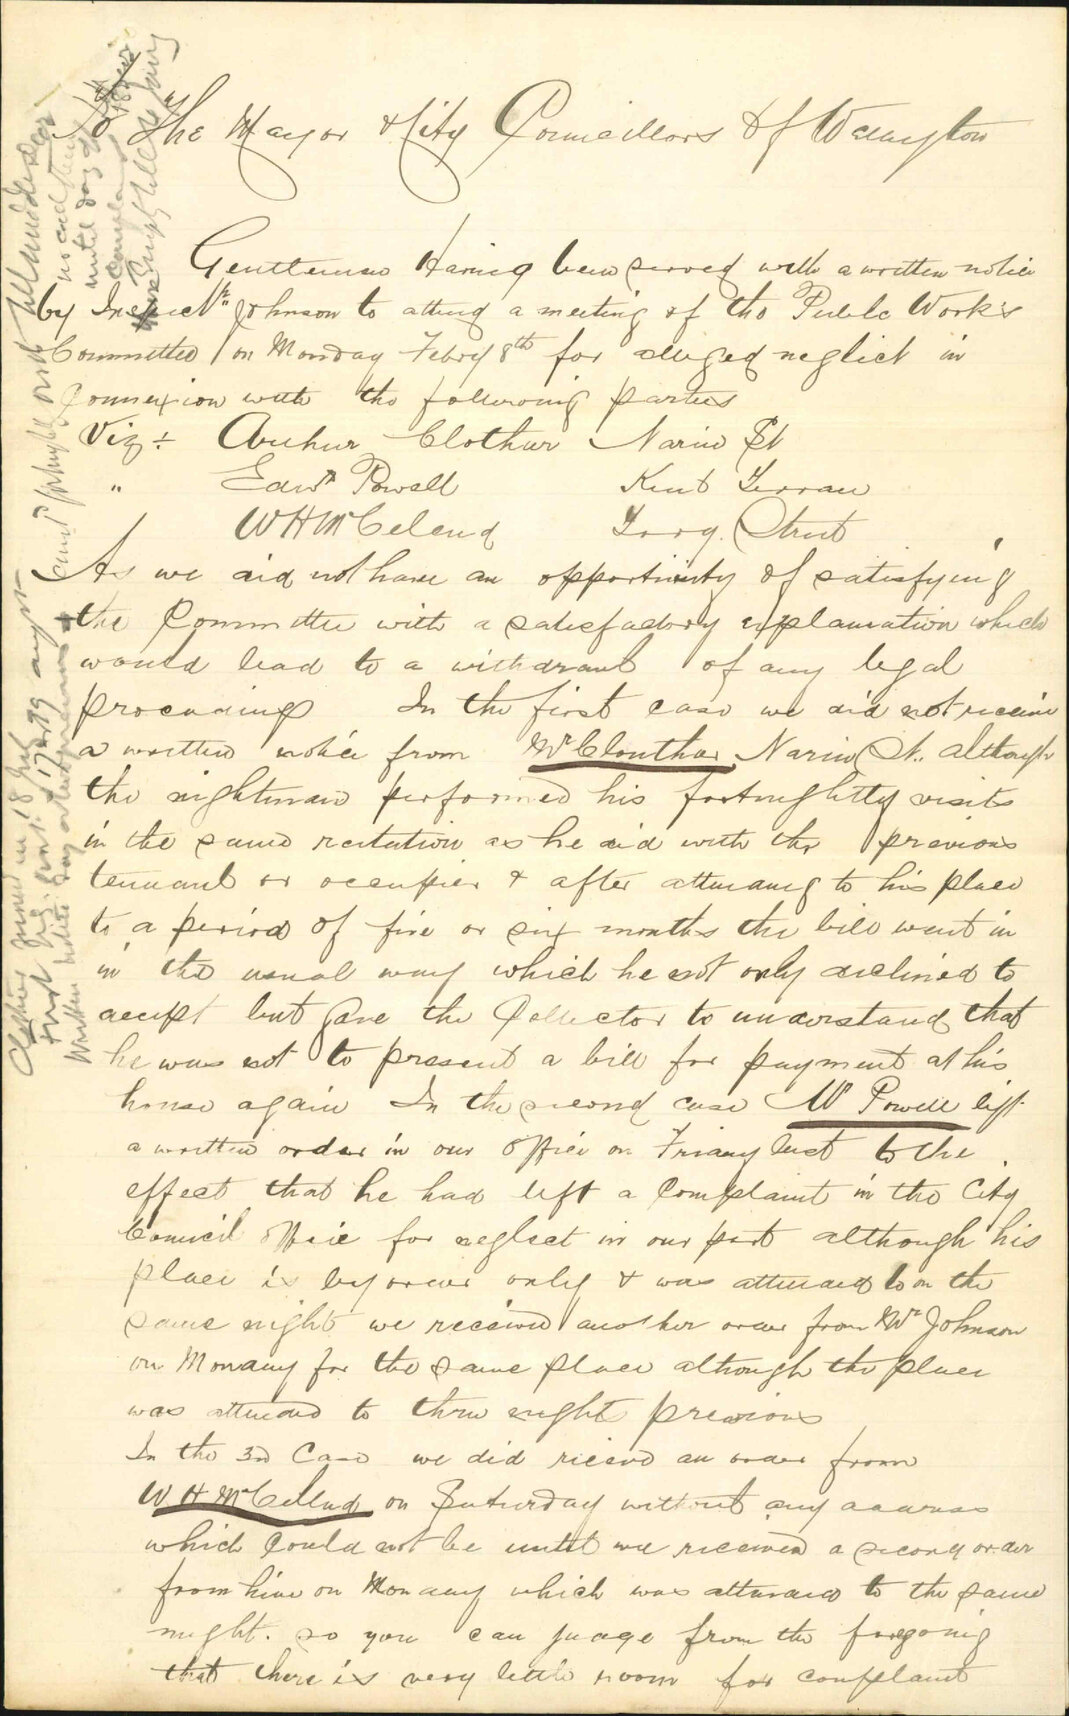 To The Mayor & City Councillors Of Wellington
Gentlemen Having been served with a written notice
by Inspec Mr Johnson to attend a meeting of the Public Work's
Committee on Monday Febry 8th for alleged neglect in
Connexion with the following parties
Viz:- Arthur Clothur Narin St
" Edwd Powell Kent Terrace
W H McClelend Tory Street
As we did not have an opportunity of satisfying
the Committee with a satisfactory explanation which
would lead to a withdraul of any legal
proceedings In the first case we did not receive
a written notice from Mr Clouthur Narin St. although
the nightman performed his fortnightly visits
in the same rotation as he did with the previous
tennant or occupier & after attending to his place
to a period of five or six months the bill went in
in the usual way which he not only declined to
accept but gave the Collector to understand that
he was not to present a bill for payment at his
house again In the second case Mr Powell left
a written order in our office on Friday last to the
effect that he had left a Complaint in the City
Council office for neglect in our part although his
place is by order only & was attended to on the
same night we received another order from Mr Johnson
on Monday for the same place although the place
was attended to three night previous
In the 3rd Case we did receive an order from
W H McClelend on Saturday without any address
which Could not be until we received a second order
from him on Monday which was attended to the same
night. so you can judge from the foregoing
that there is very little room for complaint
no
until day of
Complaint
written notice day